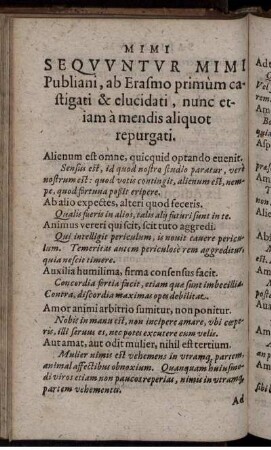 MIMI
SEQVVNTVR MIMI
Publiani, ab Erasmo primùm ca-
stigati & elucidati, nunc et-
iam à mendis aliquot
repurgati.
Alienum est omne, quicquid optando euenit.
Sensus est, id quod nostro studio paratur, verè
nostrum est: quod votis contingit, alienum est, nem-
pe, quod fortuna possit eripere.
Ab alio expectes, alteri quod feceris.
Qualis fueris in alios, tales alij futuri sunt in te.
Animus vereri qui scit, scit tuto aggredi.
Qui intelligit periculum, is nouit cauere pericu-
lum. Temeritas autem periculosè rem aggreditur,
quia nescit timere.
Auxilia humilima, firma consensus facit.
Concordia fortia facit, etiam quæ sunt imbecillia:
Contra, discordia maximas opes debilitat.
Amor animi arbitrio sumitur, non ponitur.
Nobis in manu est, non incipere amare, vbi cœpe-
ris, illi seruus es, nec potes excutere cum velis.
Aut amat, aut odit mulier, nihil est tertium.
Mulier nimis est vehemens in vtramq; partem,
animal affectibus obnoxium. Quanquam huiusmo-
di viros etiam non paucos reperias, nimis in vtramq;
partem vehementes.
Ad